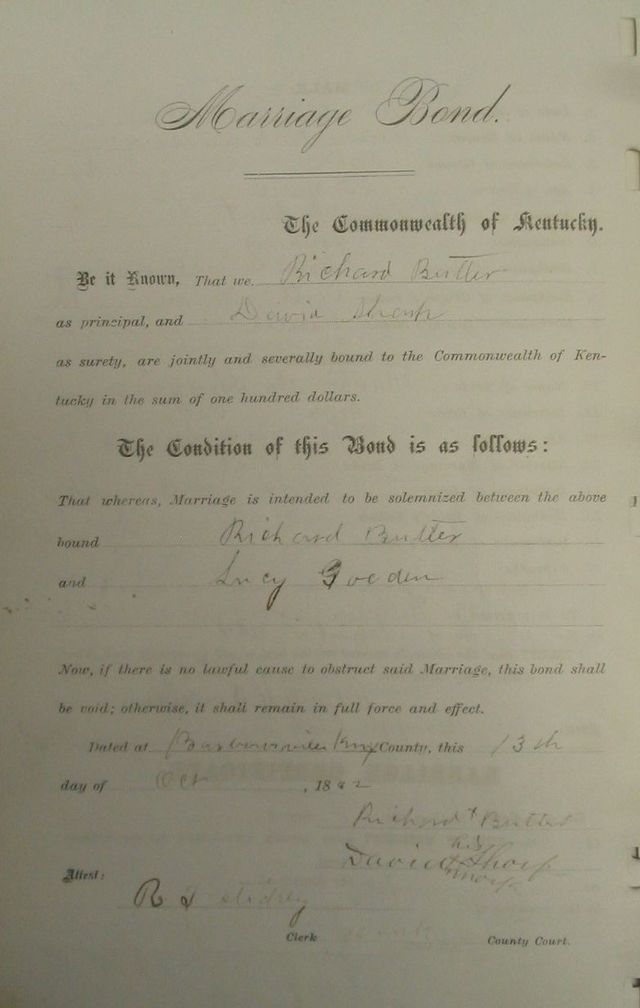 Marriage Bond.
The Commonwealth of Kentucky.
Be it Known, That we Richard Butler
as principal, and David
as surety, are jointly and severally bound to the Commonwealth of Ken-
tucky in the sum of one hundred dollars.
The Condition of this Bond is as follows:
That whereas, Marriage is intended to be solemnized between the above
bound Richard Butler
and Lucy Gooden
Now, if there is no lawful cause to obstruct said Marriage, this bond shall
be void; otherwise, it shall remain in full force and effect.
Dated at Barbourville Knox County, this 13th
day of Oct, 18
Richard x Butler
his
David Thorp
mark
Attest:
R
Clerk County Court.